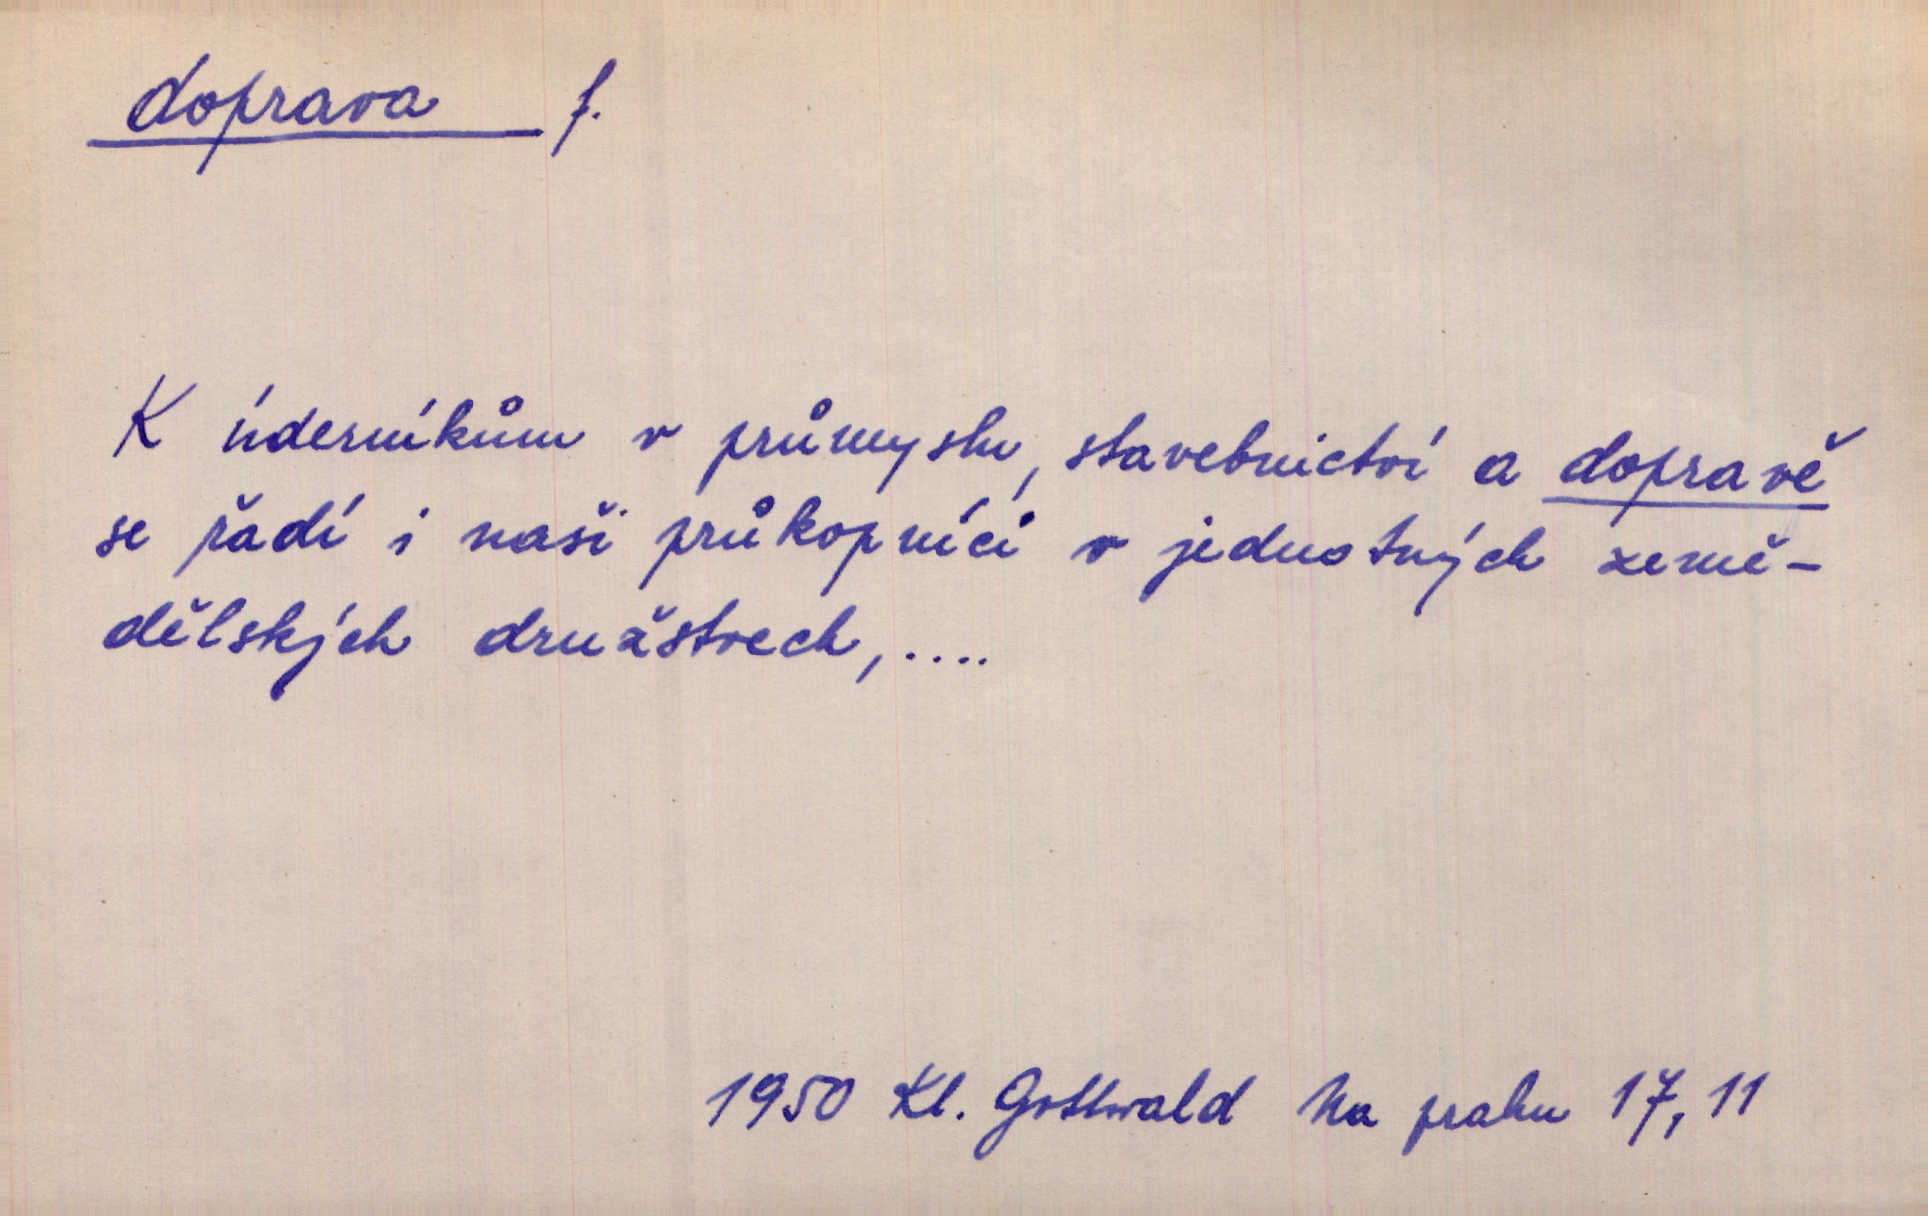 doprava f.
K úderníkům v průmyslu, stavebnictví a dopravě
se řadí i naši průkopníci v jednotných země-
dělských družstvech,....
1950 Kl. Gottwald Na prahu 17, 11